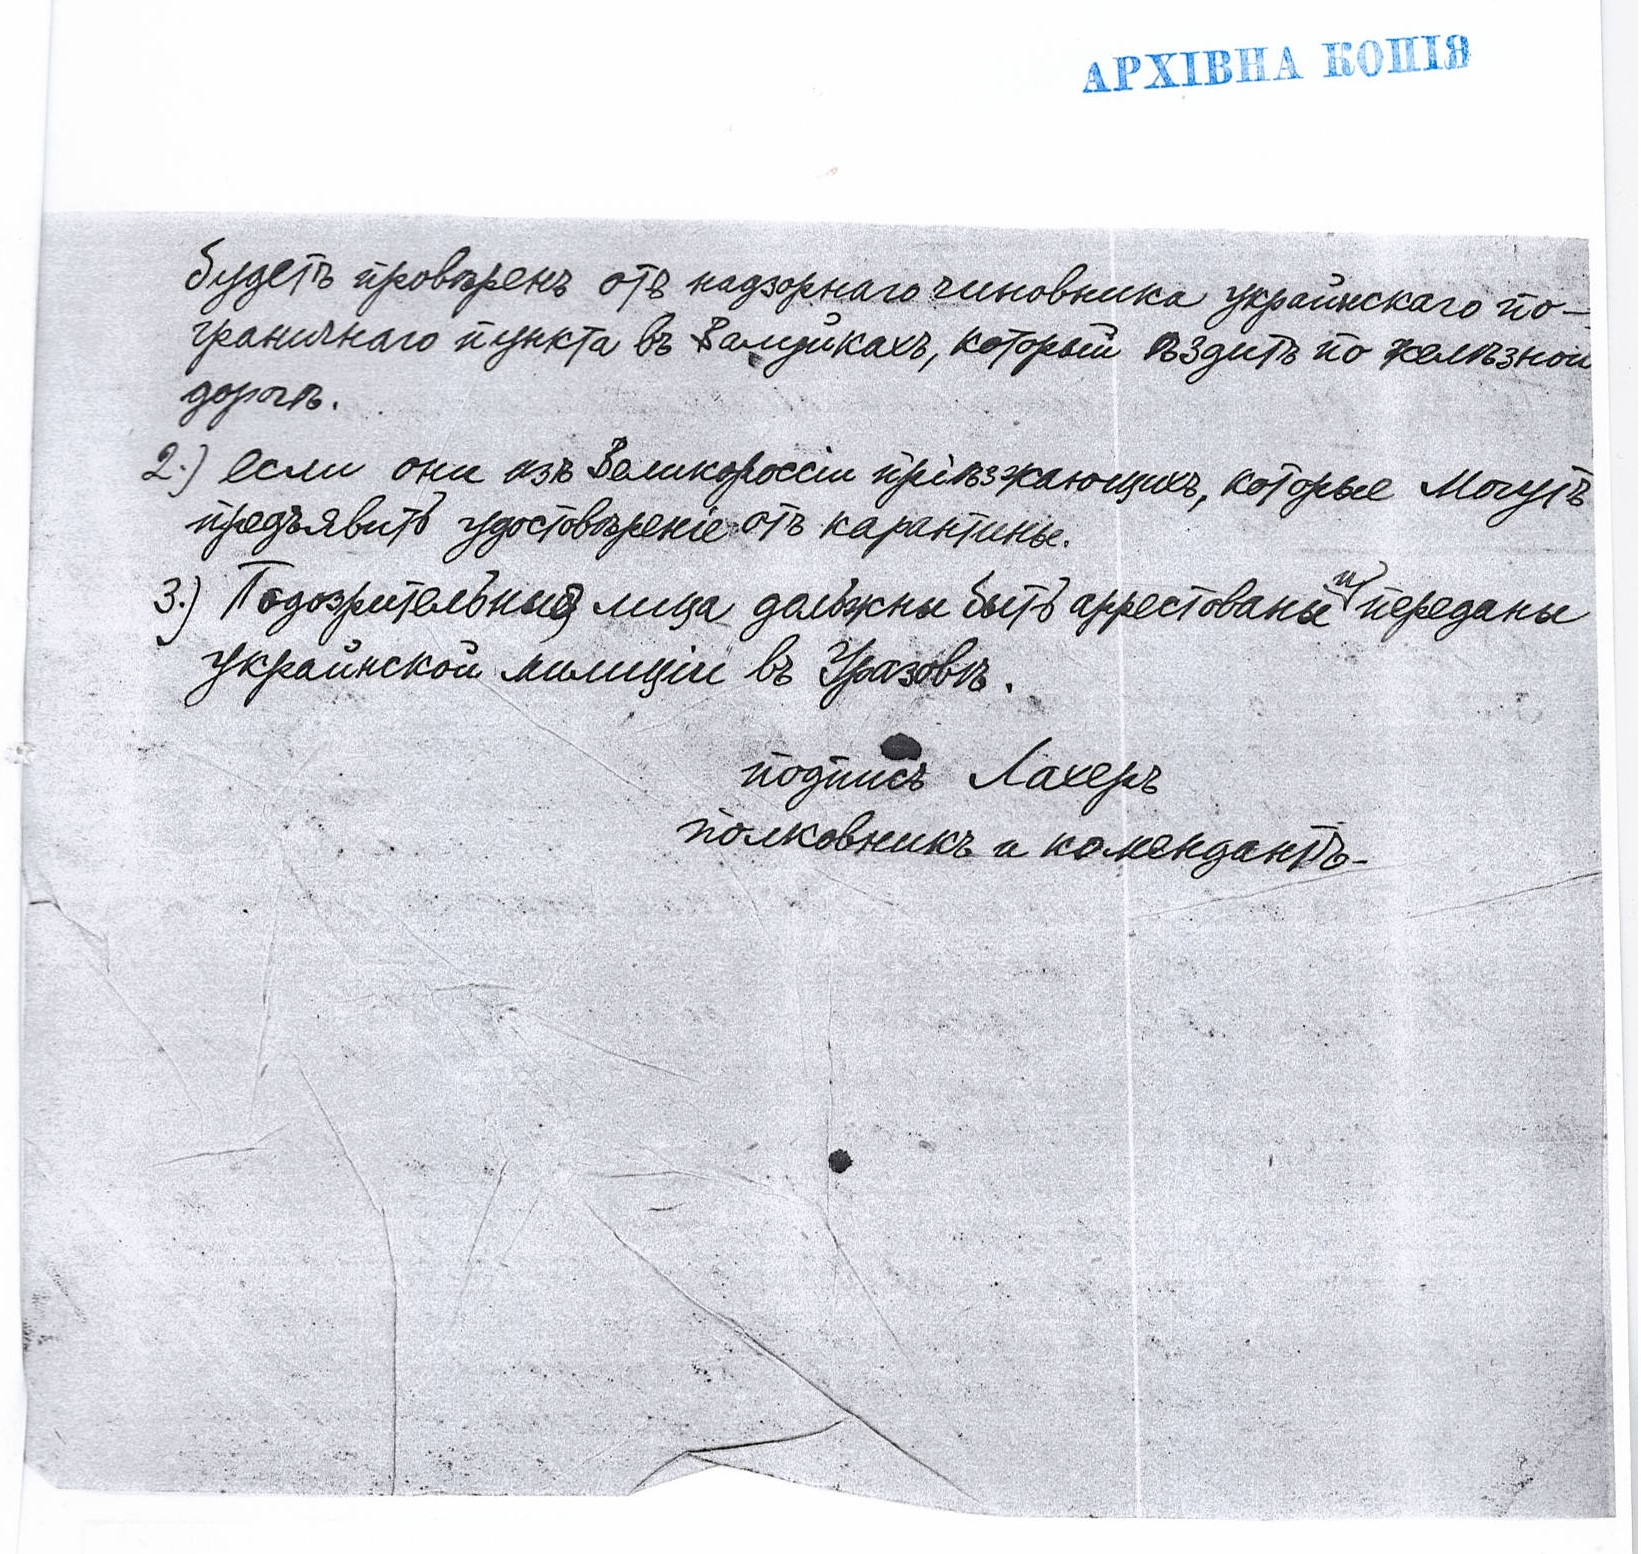 АРХІВНА КОПІЯ
будетъ провѣренъ отъ надзорнаго чиновника украинскаго по-
граничнаго пункта въ Валуйкахъ, который ѣздитъ по желѣзной
дорогѣ.
2.) если они изъ Великороссіи пріѣзжающихъ, которые могутъ
предъявить удостовѣреніе отъ карантины.
3.) Подозрительныя лица должны быть аррестованы и переданы
украинской милиціи въ Уразовѣ.
подпись Лахеръ
полковникъ и комендантъ-